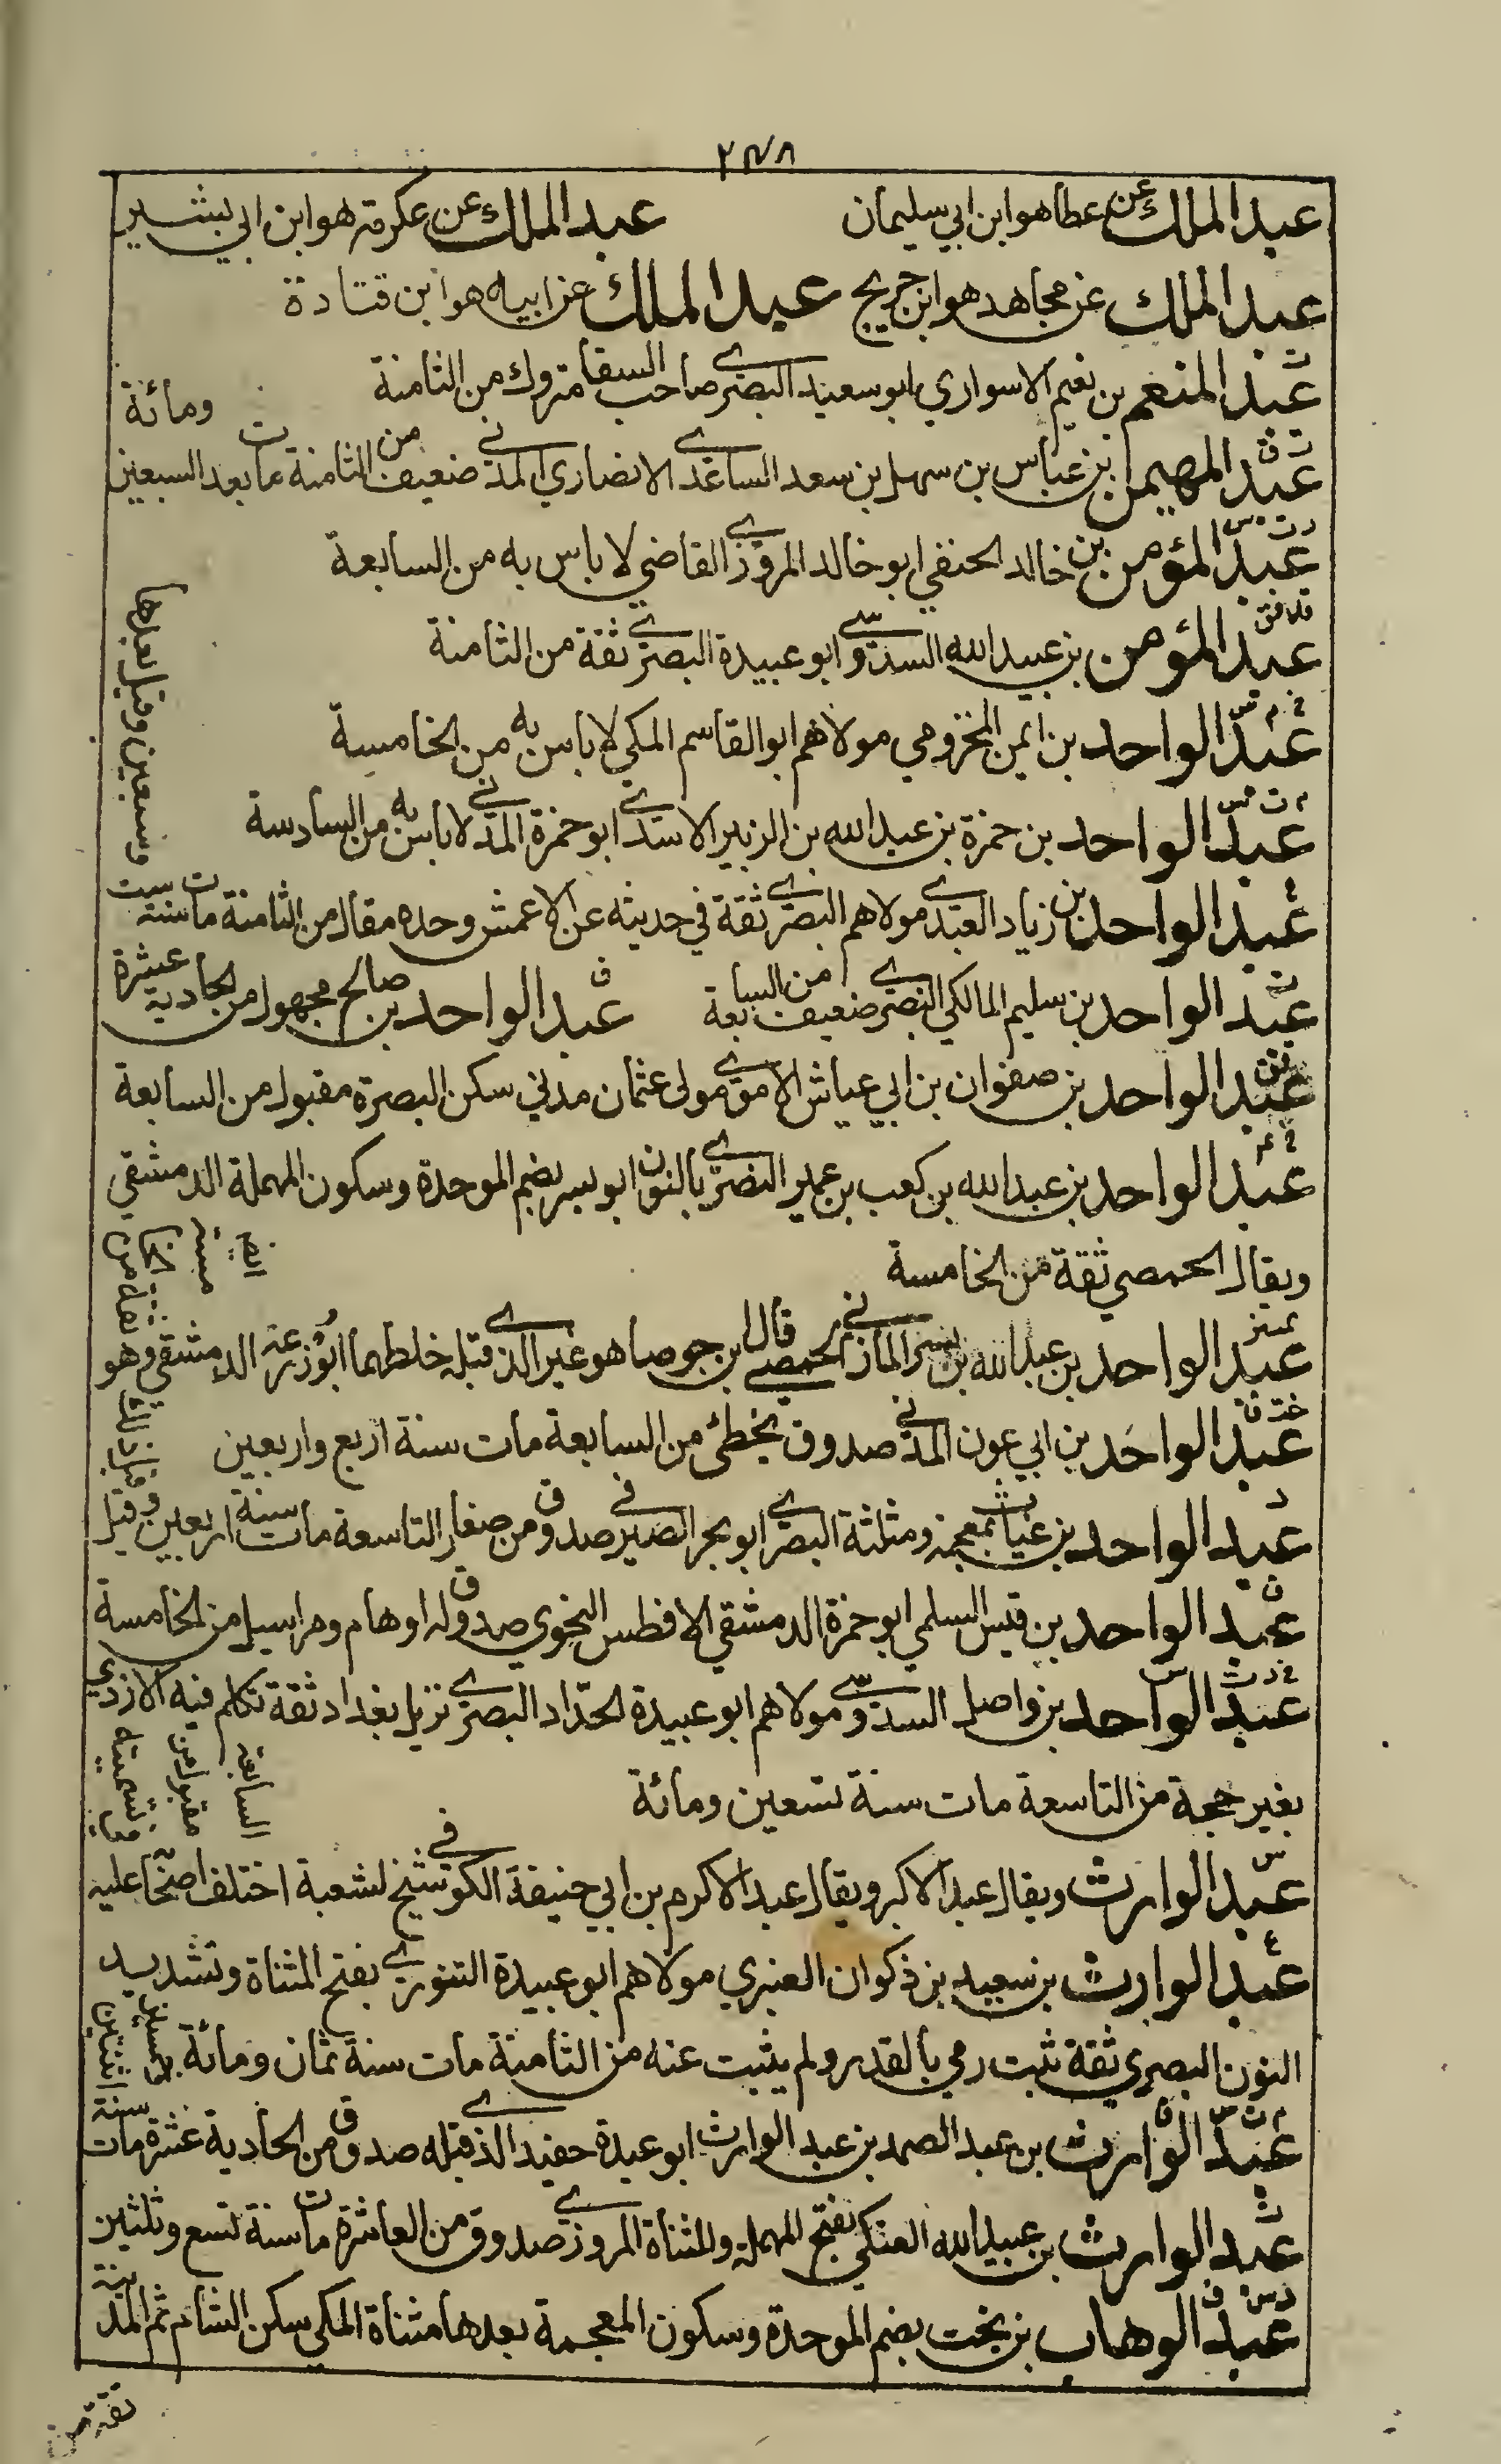 ٢٤٨
عبد الملك عن عطا هو ابن ابي سليمان عبد الملك عن عكرمة هو ابن ابي بشير
عبد الملك عن مجاهد هو ابن جريج عبد الملك عن ابيه هو ابن قتادة
ت عبد المنعم بن نعيم الاسواري ابو سعيد البصري صاحب السقا متروك من الثامنة
ت ق عبد المهيمن بن عباس بن سهل بن سعد الساعدي الانصاري المدني ضعيف من الثامنة مات بعد السبعين ومائة
د ت س عبد المؤمن بن خالد الحنفي ابو خالد المروزي القاضي لا باس به من السابعة
عبد المؤمن بن عبيد الله السدوسي ابو عبيدة البصري ثقة من الثامنة
خ م س عبد الواحد بن ايمن المخزومي مولاهم ابو القاسم المكي لا باس به من الخامسة
م ت س عبد الواحد بن حمزة بن عبد الله بن الزبير الاسدي ابو حمزة المدني لا باس به من السادسة
ع عبد الواحد بن زياد العبدي مولاهم البصري ثقة في حديثه عن الاعمش وحده مقال من الثامنة مات سنة ست
وسبعين وقيل بعدها
ت عبد الواحد بن سليم المالكي البصري ضعيف من السابعة ق عبد الواحد بن صالح مجهول من الحادية عشرة
عبد الواحد بن صفوان بن ابي عياش الاموي مولى عثمان مدني سكن البصرة مقبول من السابعة
خ عبد الواحد بن عبد الله بن كعب بن عمير النصري بالنون ابو بسر بضم الموحدة وسكون المهملة الدمشقي
ويقال الحمصي ثقة من الخامسة
تمييز عبد الواحد بن عبد الله بن بسر المازني الحمصي قال ابن جوصا هو غير الذي قبله خلطهما ابو زرعة الدمشقي وهو
ثقة من الخامسة ايضا
عبد الواحد بن ابي عون المدني صدوق يخطئ من السابعة مات سنة اربع واربعين
د عبد الواحد بن غياث بمعجمة ومثلثة البصري ابو بحر الصيرفي صدوق من صغار التاسعة مات سنة اربعين وقيل
قبل ذلك
ق عبد الواحد بن قيس السلمي ابو حمزة الدمشقي الافطس النحوي صدوق له اوهام ومراسيل من الخامسة
خ د ت س عبد الواحد بن واصل السدوسي مولاهم ابو عبيدة الحداد البصري نزيل بغداد ثقة تكلم فيه الازدي
بغير حجة من التاسعة مات سنة تسعين ومائة
س عبد الوارث ويقال عبد الاكبر ويقال عبد الاكرم بن ابي حنيفة الكوفي شيخ لشعبة اختلف اصحابه عليه
في تسميته مقبول من السابعة
ع عبد الوارث بن سعيد بن ذكوان العنبري مولاهم ابو عبيدة التنوري بفتح المثناة وتشديد
النون البصري ثقة ثبت رمي بالقدر ولم يثبت عنه من الثامنة مات سنة ثمان ومائة
م ت س ق عبد الوارث بن عبد الصمد بن عبد الوارث ابو عبيدة حفيد الذي قبله صدوق من الحادية عشرة مات
سنة اثنتين وخمسين
ت عبد الوارث بن عبيد الله العتكي بفتح المهملة والمثناة المروزي صدوق من العاشرة مات سنة تسع وثلثين
د س ق عبد الوهاب بن بخت بضم الموحدة وسكون المعجمة بعدها مثناة المكي سكن الشام ثم المدينة
ثقة من